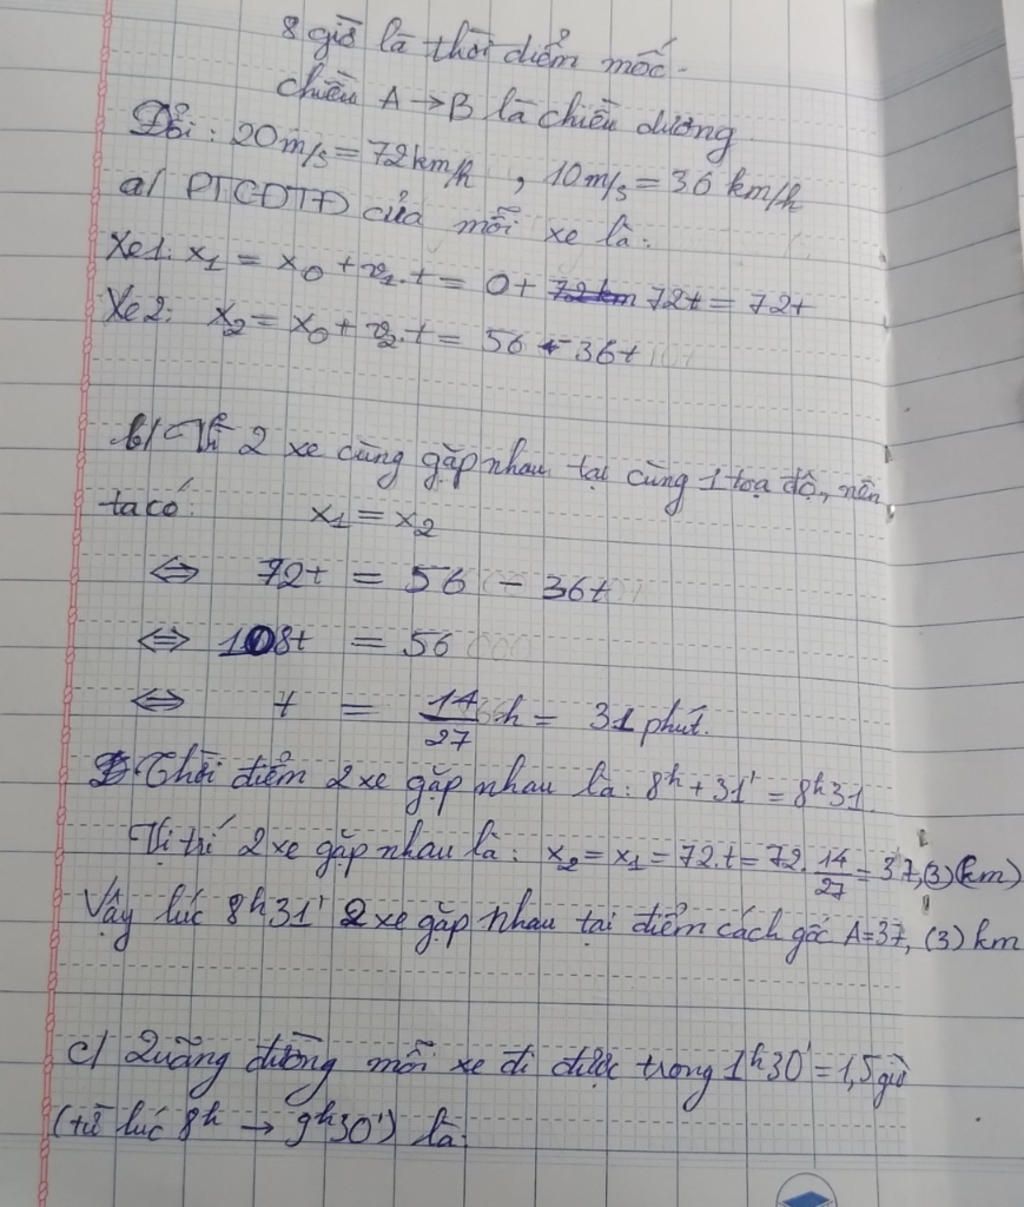 8 giờ là thời điểm mốc.
chiều A → B là chiều dương
Đổi: 20m/s = 72km/h, 10m/s = 36 km/h
a/ PTCĐTĐ của mỗi xe là:
Xe1: x₁ = x₀ + v₁.t = 0 + 72km 72t = 72t
Xe2: x₂ = x₀ + v₂.t = 56 - 36t
b/ Vì 2 xe cùng gặp nhau tại cùng 1 toạ độ, nên
ta có: x₁ = x₂
⇔ 72t = 56 - 36t
⇔ 108t = 56
⇔ t = 14/27 h = 31 phút.
Thời điểm 2 xe gặp nhau là: 8h + 31' = 8h31
Vị trí 2 xe gặp nhau là: x₂ = x₁ = 72.t = 72. 14/27 = 37,(3)(km)
Vậy lúc 8h31' 2 xe gặp nhau tại điểm cách gốc A = 37,(3) km
c/ Quãng đường mỗi xe đi được trong 1h30' = 1,5 giờ
(từ lúc 8h → 9h30') là: